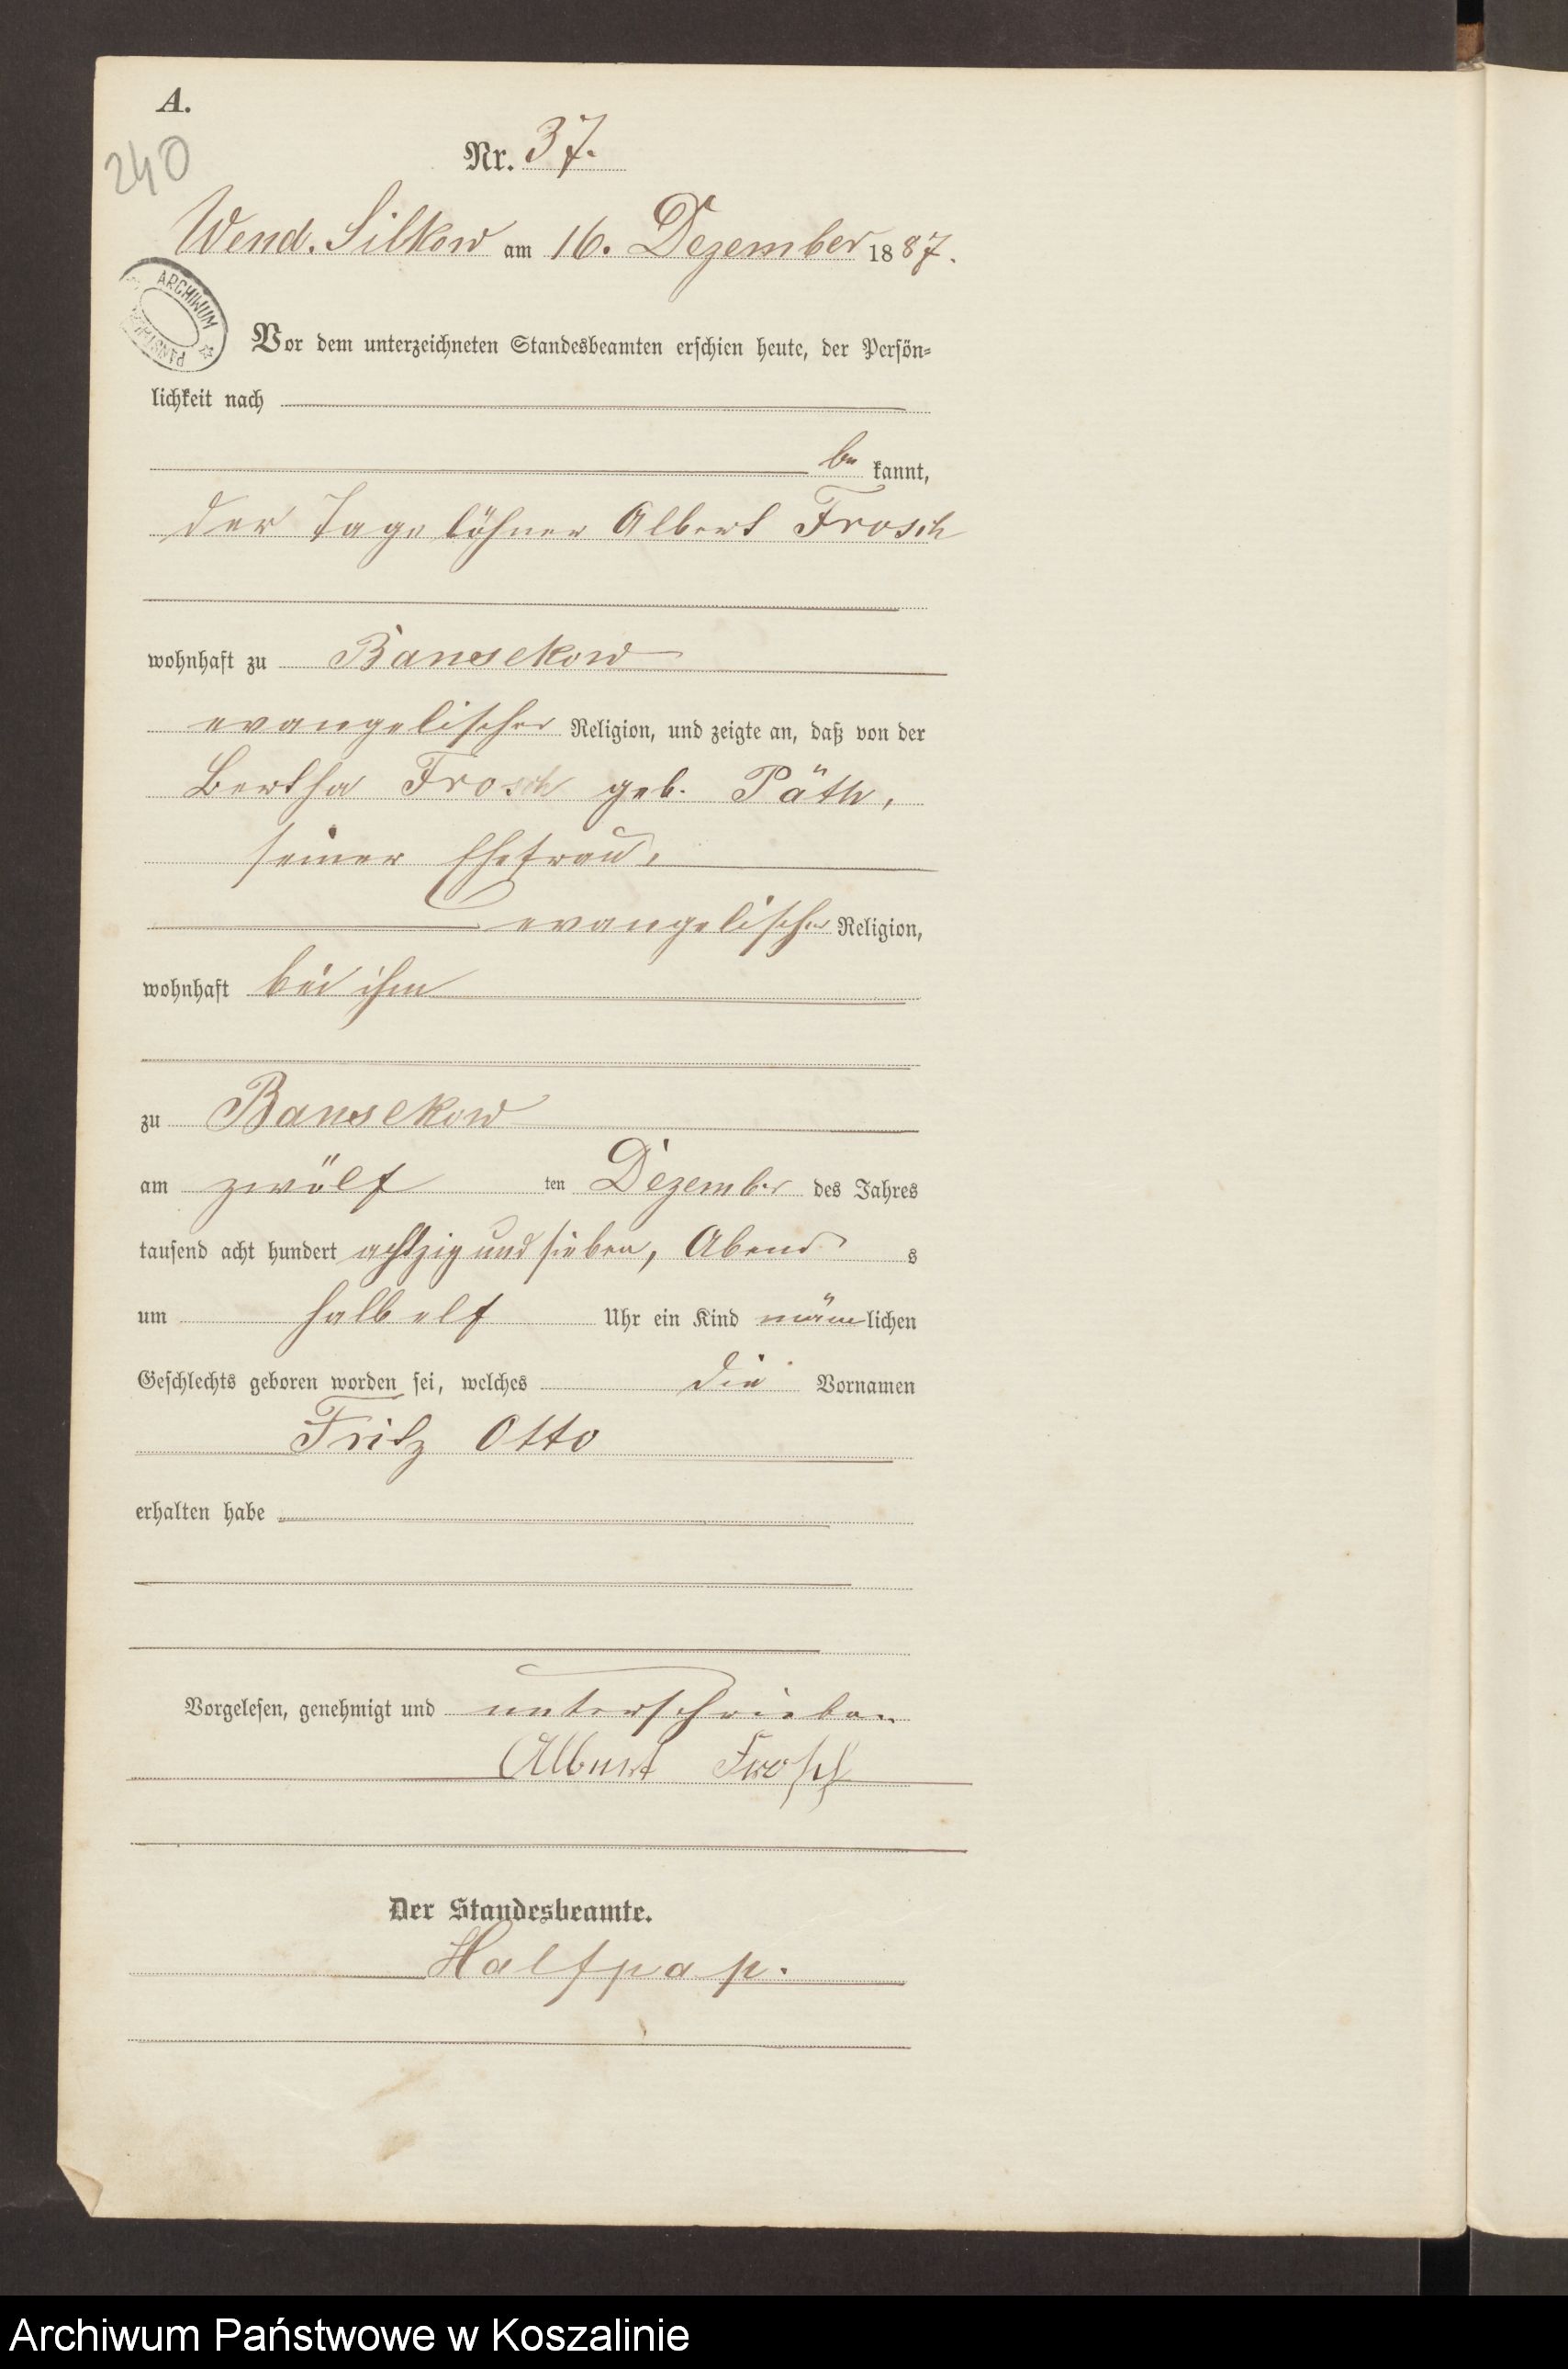 A.
240
Nr. 37.
Wend. Silkow am 16. Dezember 1887.
ARCHIWUM
Vor dem unterzeichneten Standesbeamten erschien heute, der Persön-
lichkeit nach
be kannt,
der Tagelöhner Albert Frosch
wohnhaft zu Bansekow
evangelischer Religion, und zeigte an, daß von der
Bertha Frosch geb. Päth,
seiner Ehefrau,
evangelischer Religion,
wohnhaft bei ihm
zu Bansekow
am zwölf ten Dezember des Jahres
tausend acht hundert achtzig und sieben, Abend s
um halb elf Uhr ein Kind männlichen
Geschlechts geboren worden sei, welches die Vornamen
Fritz Otto
erhalten habe
Vorgelesen, genehmigt und unterschrieben
Albert Frosch
Der Standesbeamte.
Halfpap.
Archiwum Państwowe w Koszalinie